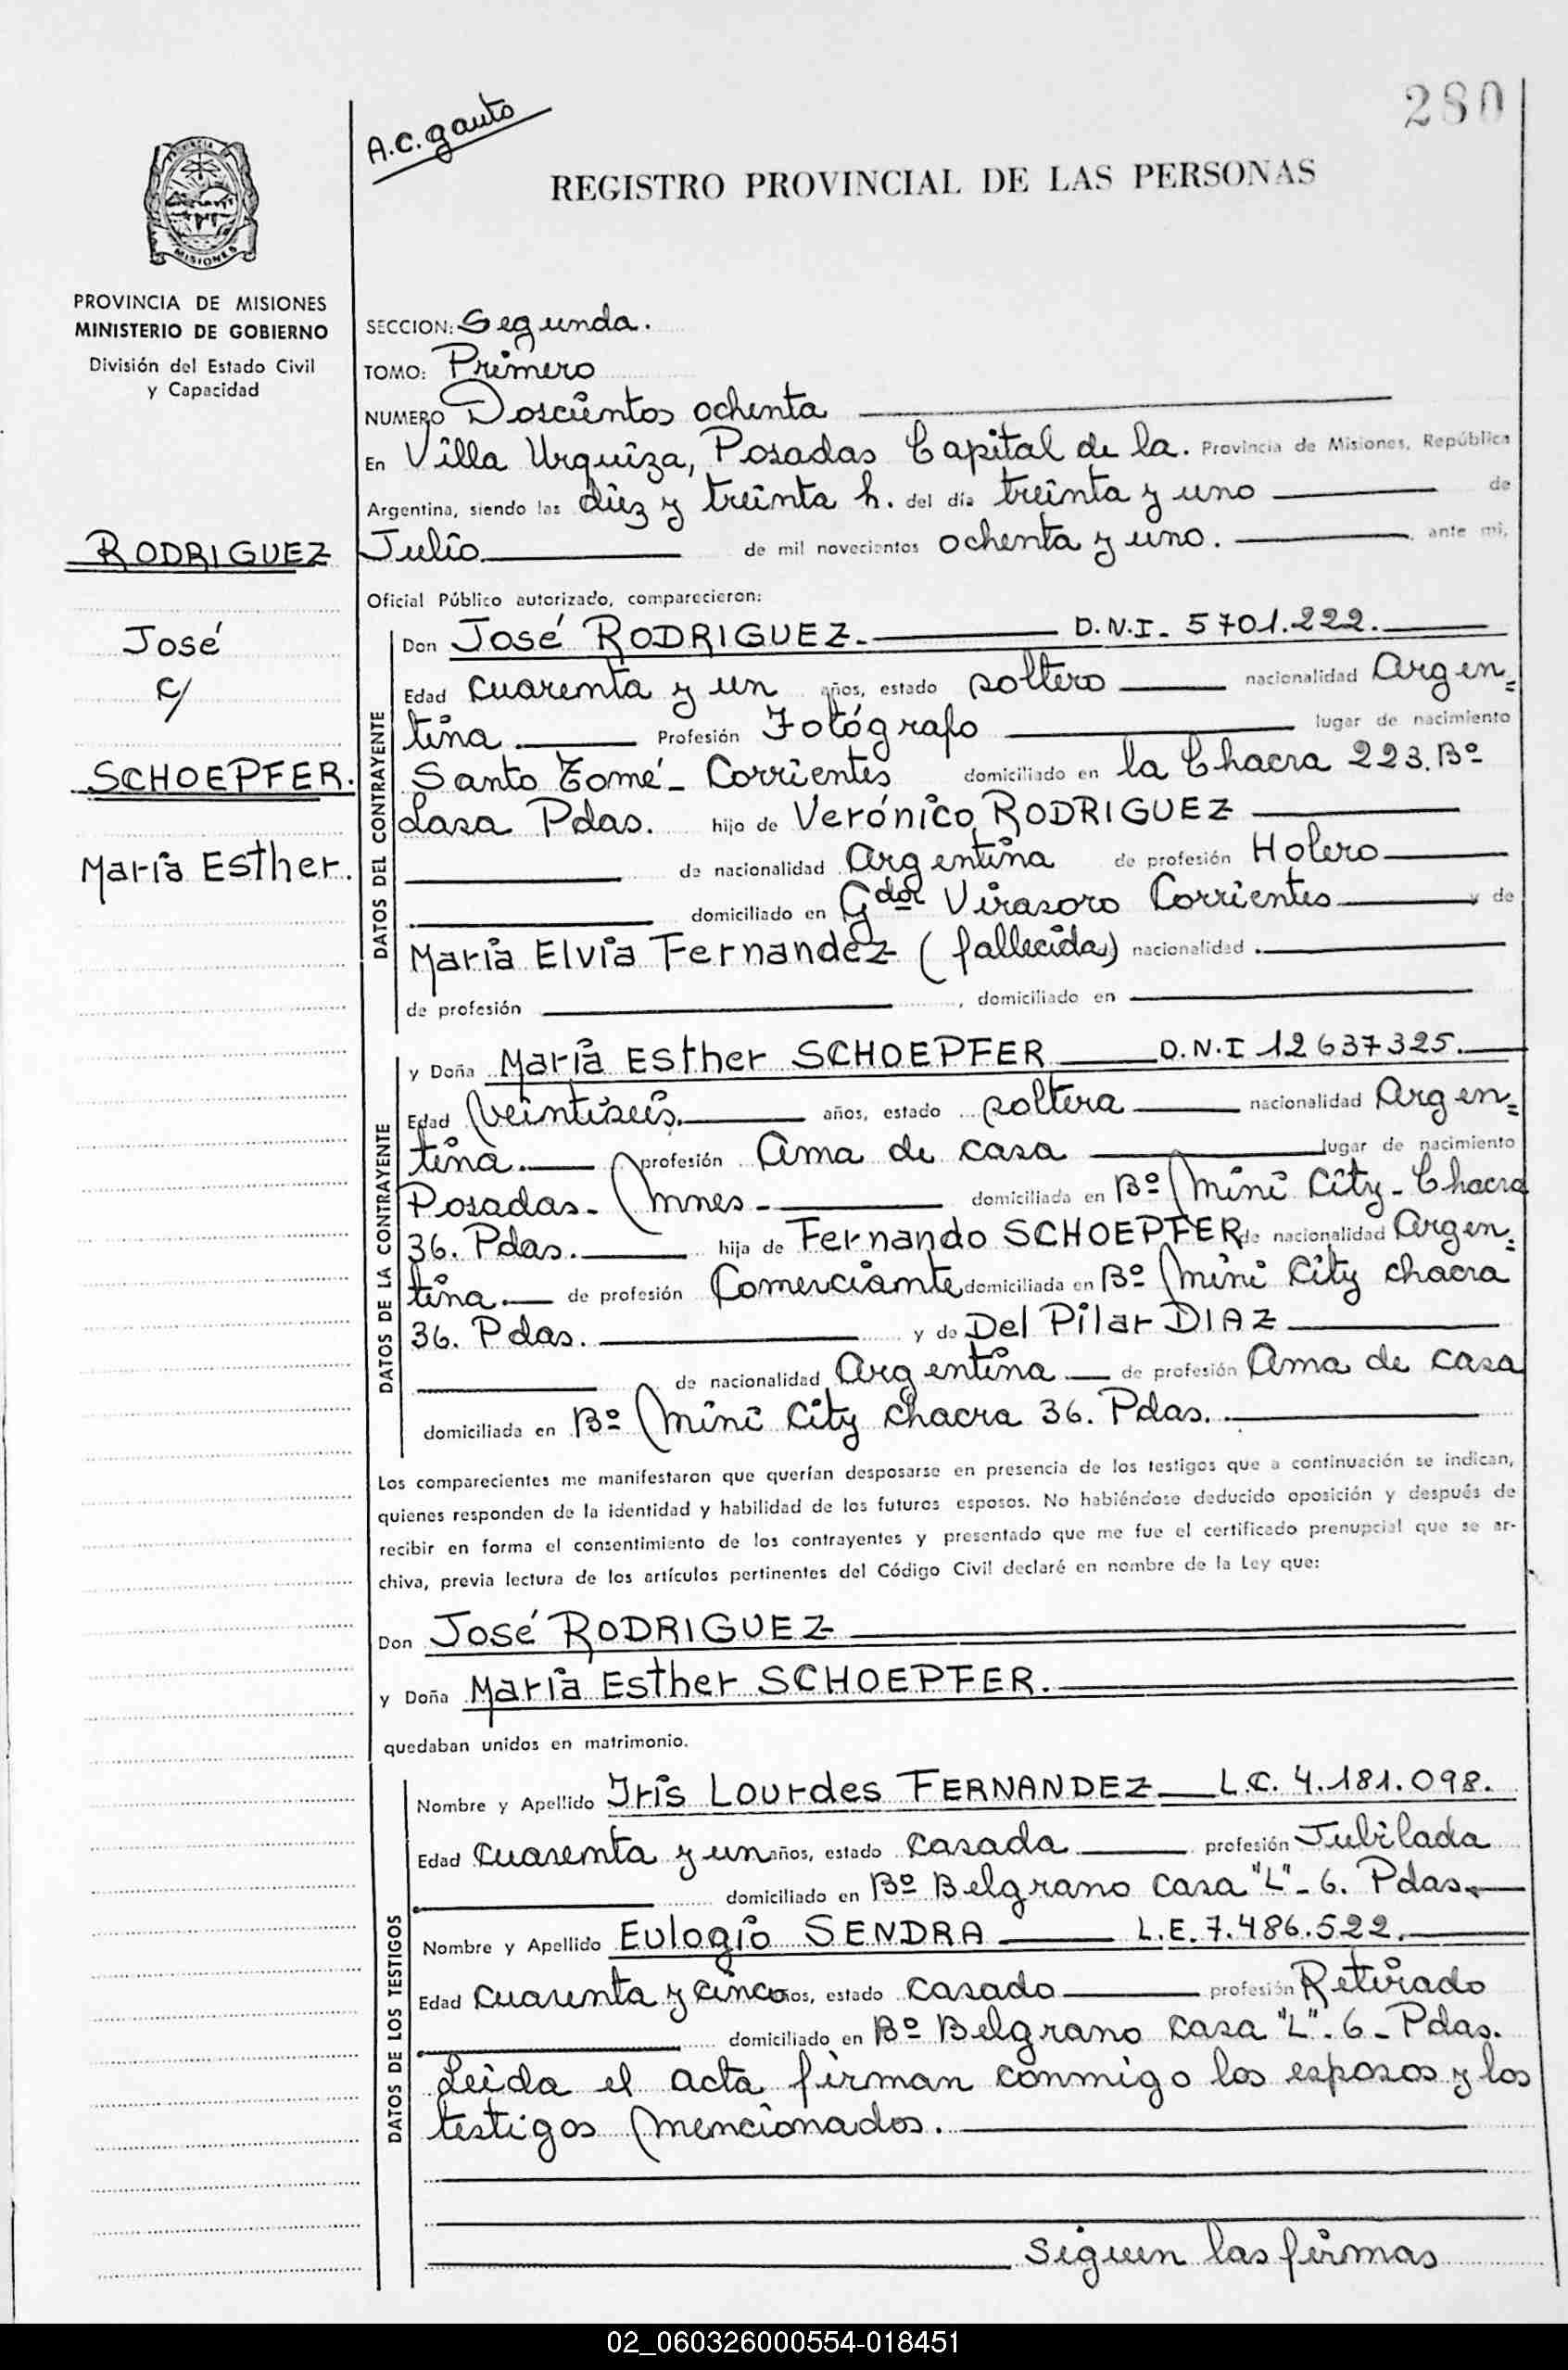 280
A.C. Gauto
REGISTRO PROVINCIAL DE LAS PERSONAS
MISIONES
PROVINCIA DE MISIONES
MINISTERIO DE GOBIERNO
División del Estado Civil
y Capacidad
RODRIGUEZ
José
c/
SCHOEPFER.
María Esther.
SECCION: Segunda.
TOMO: Primero
NUMERO Doscientos ochenta
En Villa Urquiza, Posadas Capital de la. Provincia de Misiones, República
Argentina, siendo las diez y treinta h. del día treinta y uno de
Julio de mil novecientos ochenta y uno. ante mi,
Oficial Público autorizado, comparecieron:
DATOS DEL CONTRAYENTE
Don José RODRIGUEZ. D.N.I. 5701.222.
Edad cuarenta y un años, estado soltero nacionalidad Argen=
tina. Profesión Fotógrafo lugar de nacimiento
Santo Tomé - Corrientes domiciliado en la Chacra 223. Bº
Lasa Pdas. hijo de Verónico RODRIGUEZ
de nacionalidad Argentina de profesión Holero
domiciliado en Gdor Virasoro Corrientes y de
María Elvia Fernandez (fallecida) nacionalidad.
de profesión , domiciliado en
DATOS DE LA CONTRAYENTE
y Doña María Esther SCHOEPFER D.N.I 12637325.
Edad Veintiseis. años, estado soltera nacionalidad Argen=
tina. profesión Ama de casa lugar de nacimiento
Posadas - Mnes - domiciliada en Bº Mini City - Chacra
36. Pdas. hija de Fernando SCHOEPFER de nacionalidad Argen=
tina. de profesión Comerciante domiciliada en Bº Mini City chacra
36. Pdas. y de Del Pilar DIAZ
de nacionalidad Argentina de profesión Ama de casa
domiciliada en Bº Mini City chacra 36. Pdas.
Los comparecientes me manifestaron que querían desposarse en presencia de los testigos que a continuación se indican,
quienes responden de la identidad y habilidad de los futuros esposos. No habiéndose deducido oposición y después de
recibir en forma el consentimiento de los contrayentes y presentado que me fue el certificado prenupcial que se ar-
chiva, previa lectura de los artículos pertinentes del Código Civil declaré en nombre de la Ley que:
Don José RODRIGUEZ
y Doña María Esther SCHOEPFER.
quedaban unidos en matrimonio.
DATOS DE LOS TESTIGOS
Nombre y Apellido Iris Lourdes FERNANDEZ L.C. 4.181.098.
Edad cuarenta y un años, estado casada profesión Jubilada
domiciliado en Bº Belgrano casa "L" - 6. Pdas.
Nombre y Apellido Eulogio SENDRA L.E. 7.486.522.
Edad cuarenta y cinco años, estado casado profesión Retirado
domiciliado en Bº Belgrano casa "L". 6 - Pdas.
Leida el acta firman conmigo los esposos y los
testigos mencionados.
Siguen las firmas
02_060326000554-018451